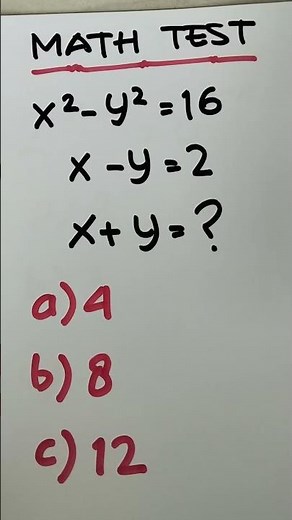 MATH TEST
x²-y²=16
x-y=2
x+y=?
a)4
b)8
c)12